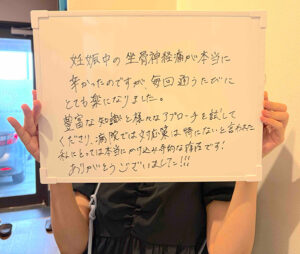 妊娠中の坐骨神経痛が本当に
辛かったのですが毎回通うたびに
とても楽になりました。
豊富な知識と様々なアプローチを試して
くださり、病院では対応策は特にないと言われた
私にとっては本当にかけ込み寺的な存在です!
ありがとうございました!!